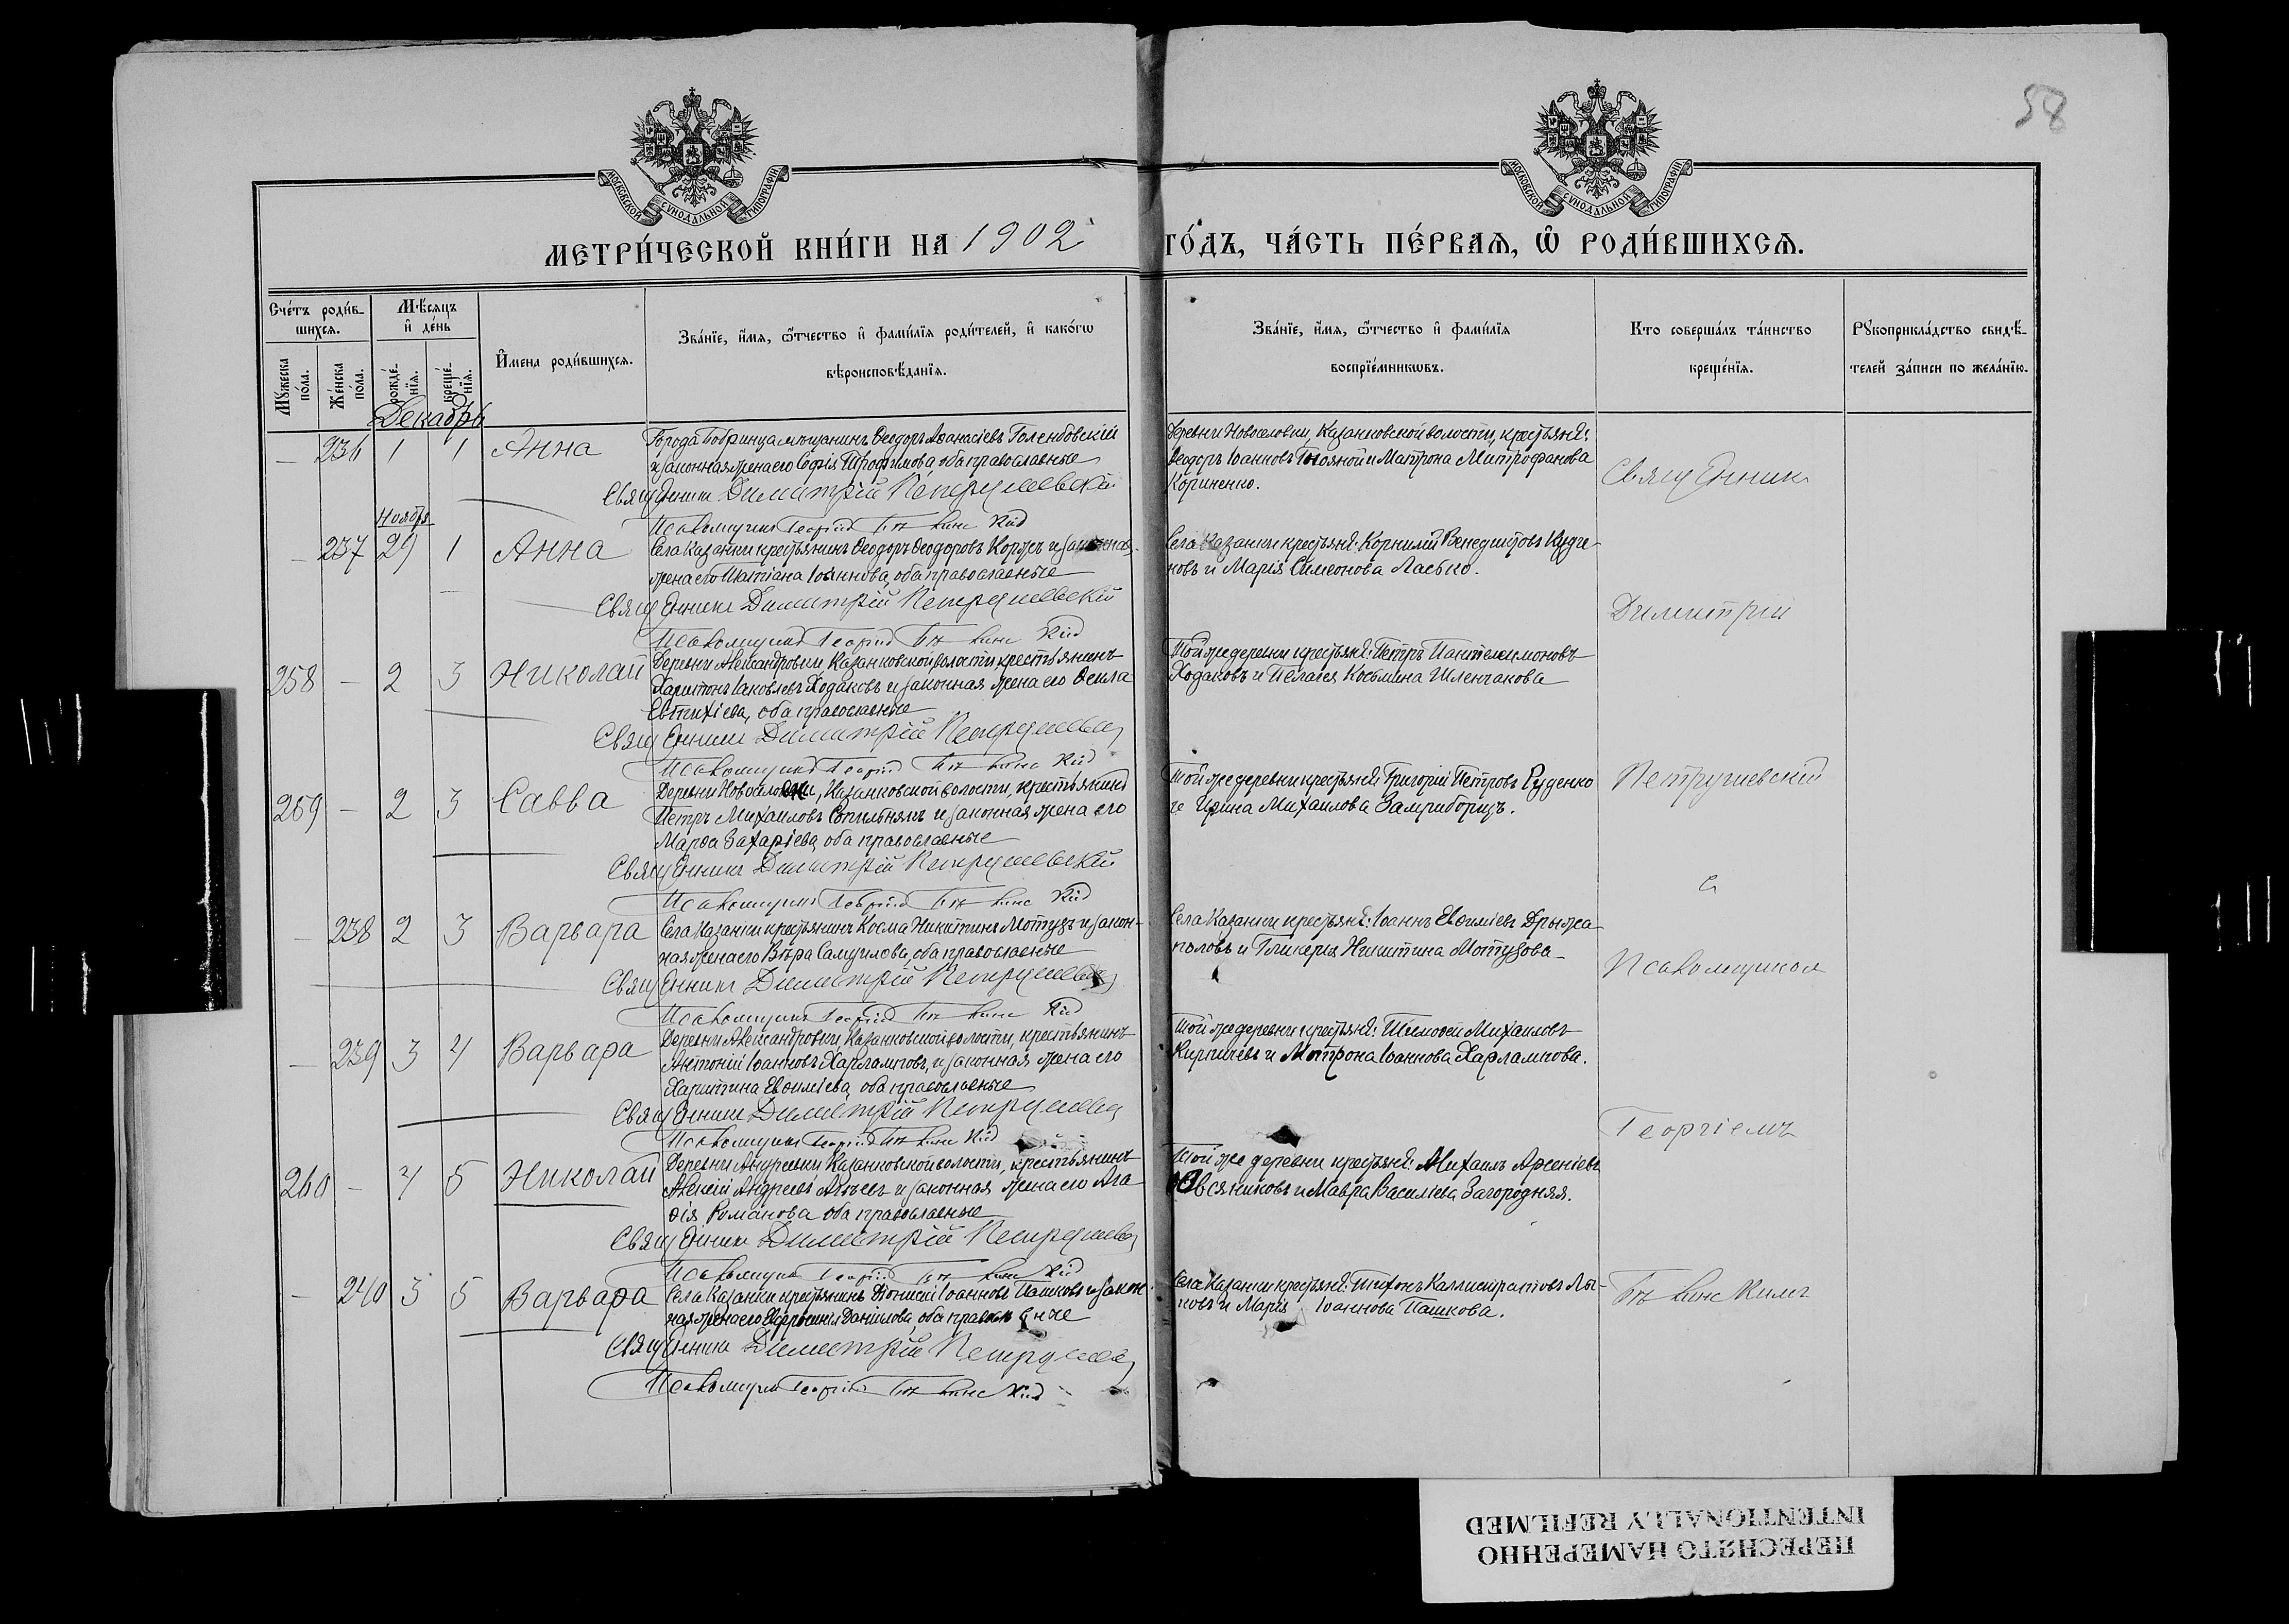 58
МОСКОВСКОЙ СУНОДАЛЬНОЙ ТИПОГРАФІИ
МОСКОВСКОЙ СУНОДАЛЬНОЙ ТИПОГРАФІИ
МЕТРИ́ЧЕСКОЙ КНИ́ГИ НА 1902 ГО́ДЪ, ЧА́СТЬ ПЕ́РВАѦ, Ѡ РОДИ́ВШИХСѦ.
Сче́тъ роди́в-
шихсѧ.
Мѣ́сѧцъ
и҆ де́нь
Мꙋ́жеска
по́ла.
Же́нска
по́ла.
рожде́-
нїѧ.
креще́-
нїѧ.
И҆мена роди́вшихсѧ.
Зва́нїе, и҆́мѧ, ѻ҆́тчество и҆ фами́лїѧ роди́телей, и҆ како́гѡ
вѣроисповѣ́данїѧ.
Зва́нїе, и҆́мѧ, ѻ҆́тчество и҆ фами́лїѧ
воспрїе́мникѡвъ.
Кто соверша́лъ та́инство
креще́нїѧ.
Рꙋкоприкла́дство свидѣ́-
телей за́писи по жела́нїю.
Декабрь
— 236 1 1 Анна
Города Бобринца мѣщанинъ Ѳеодоръ Аѳанасіевъ Голембовскій
и законная жена его Софія Трофимова, оба православные
Священникъ Димитрій Петрушевскій
Псаломщикъ Георгій
Деревни Новоселовки, Казанковской волости, крестьяне:
Ѳеодоръ Іоанновъ и Матрона Митрофанова
Корниенко.
Ноября
— 237 29 1 Анна
Села Казанки крестьянинъ Ѳеодоръ Ѳеодоровъ Коржъ и законная
жена его Татіана Іоаннова, оба православные
Священникъ Димитрій Петрушевскій
Псаломщикъ Георгій
Села Казанки крестьяне: Корнилій Венедиктовъ Кудре-
новъ и Марія Симеонова Ласько.
258 — 2 3 Николай
Деревни Александровки Казанковской волости, крестьянинъ
Харитонъ Іаковлевъ Ходаковъ и законная жена его Ѳекла
Евтихіева, оба православные
Священникъ Димитрій Петрушевскій
Псаломщикъ Георгій
Той же деревни крестьяне: Петръ Пантелеимоновъ
Ходаковъ и Пелагея Косьмина Шленчакова
259 — 2 3 Савва
Деревни Новоселовки, Казанковской волости, крестьянинъ
Петръ Михаиловъ Сопильнякъ и законная жена его
Марѳа Захаріева, оба православные
Священникъ Димитрій Петрушевскій
Псаломщикъ Георгій
Той же деревни крестьяне: Григорій Петровъ Руденко
и Ирина Михаилова Замриборщъ.
— 238 2 3 Варвара
Села Казанки крестьянинъ Косма Никитинъ Мотузъ и закон-
ная жена его Вѣра Самуилова, оба православные
Священникъ Димитрій Петрушевскій
Псаломщикъ Георгій
Села Казанки крестьяне: Іоаннъ Евѳиміевъ Дрыжа-
половъ и Гликерія Никитина Мотузова
— 239 3 4 Варвара
Деревни Александровки, Казанковской волости, крестьянинъ
Антоній Іоанновъ Харламповъ, и законная жена его
Харитина Евѳиміева, оба православные
Священникъ Димитрій Петрушевскій
Псаломщикъ Георгій
Той же деревни крестьяне: Тимоѳей Михаиловъ
Кирпичевъ и Мотрона Іоаннова Харлампова.
260 — 4 5 Николай
Деревни Андреевки Казанковской волости, крестьянинъ
Алексій Андреевъ и законная жена его Ага-
ѳія Романова оба православные
Священникъ Димитрій Петрушевскій
Псаломщикъ Георгій
Той же деревни крестьяне: Михаилъ Арсеніевъ
Овсяниковъ и Мавра Василіева Загородняя.
— 240 3 5 Варвара
Села Казанки крестьянинъ Діонисій Іоанновъ Пашковъ и закон-
ная жена его Евфросинія Даніилова, оба православные
Священникъ Димитрій Петрушевскій
Псаломщикъ Георгій
Села Казанки крестьяне: Тихонъ Каллистратовъ Лы-
ковъ и Марія Іоаннова Пашкова.
Священникъ
Димитрій
Петрушевскій
съ
Псаломщикомъ
Георгіемъ
ПЕРЕСНЯТО НАМЕРЕННО
INTENTIONALLY REFILMED